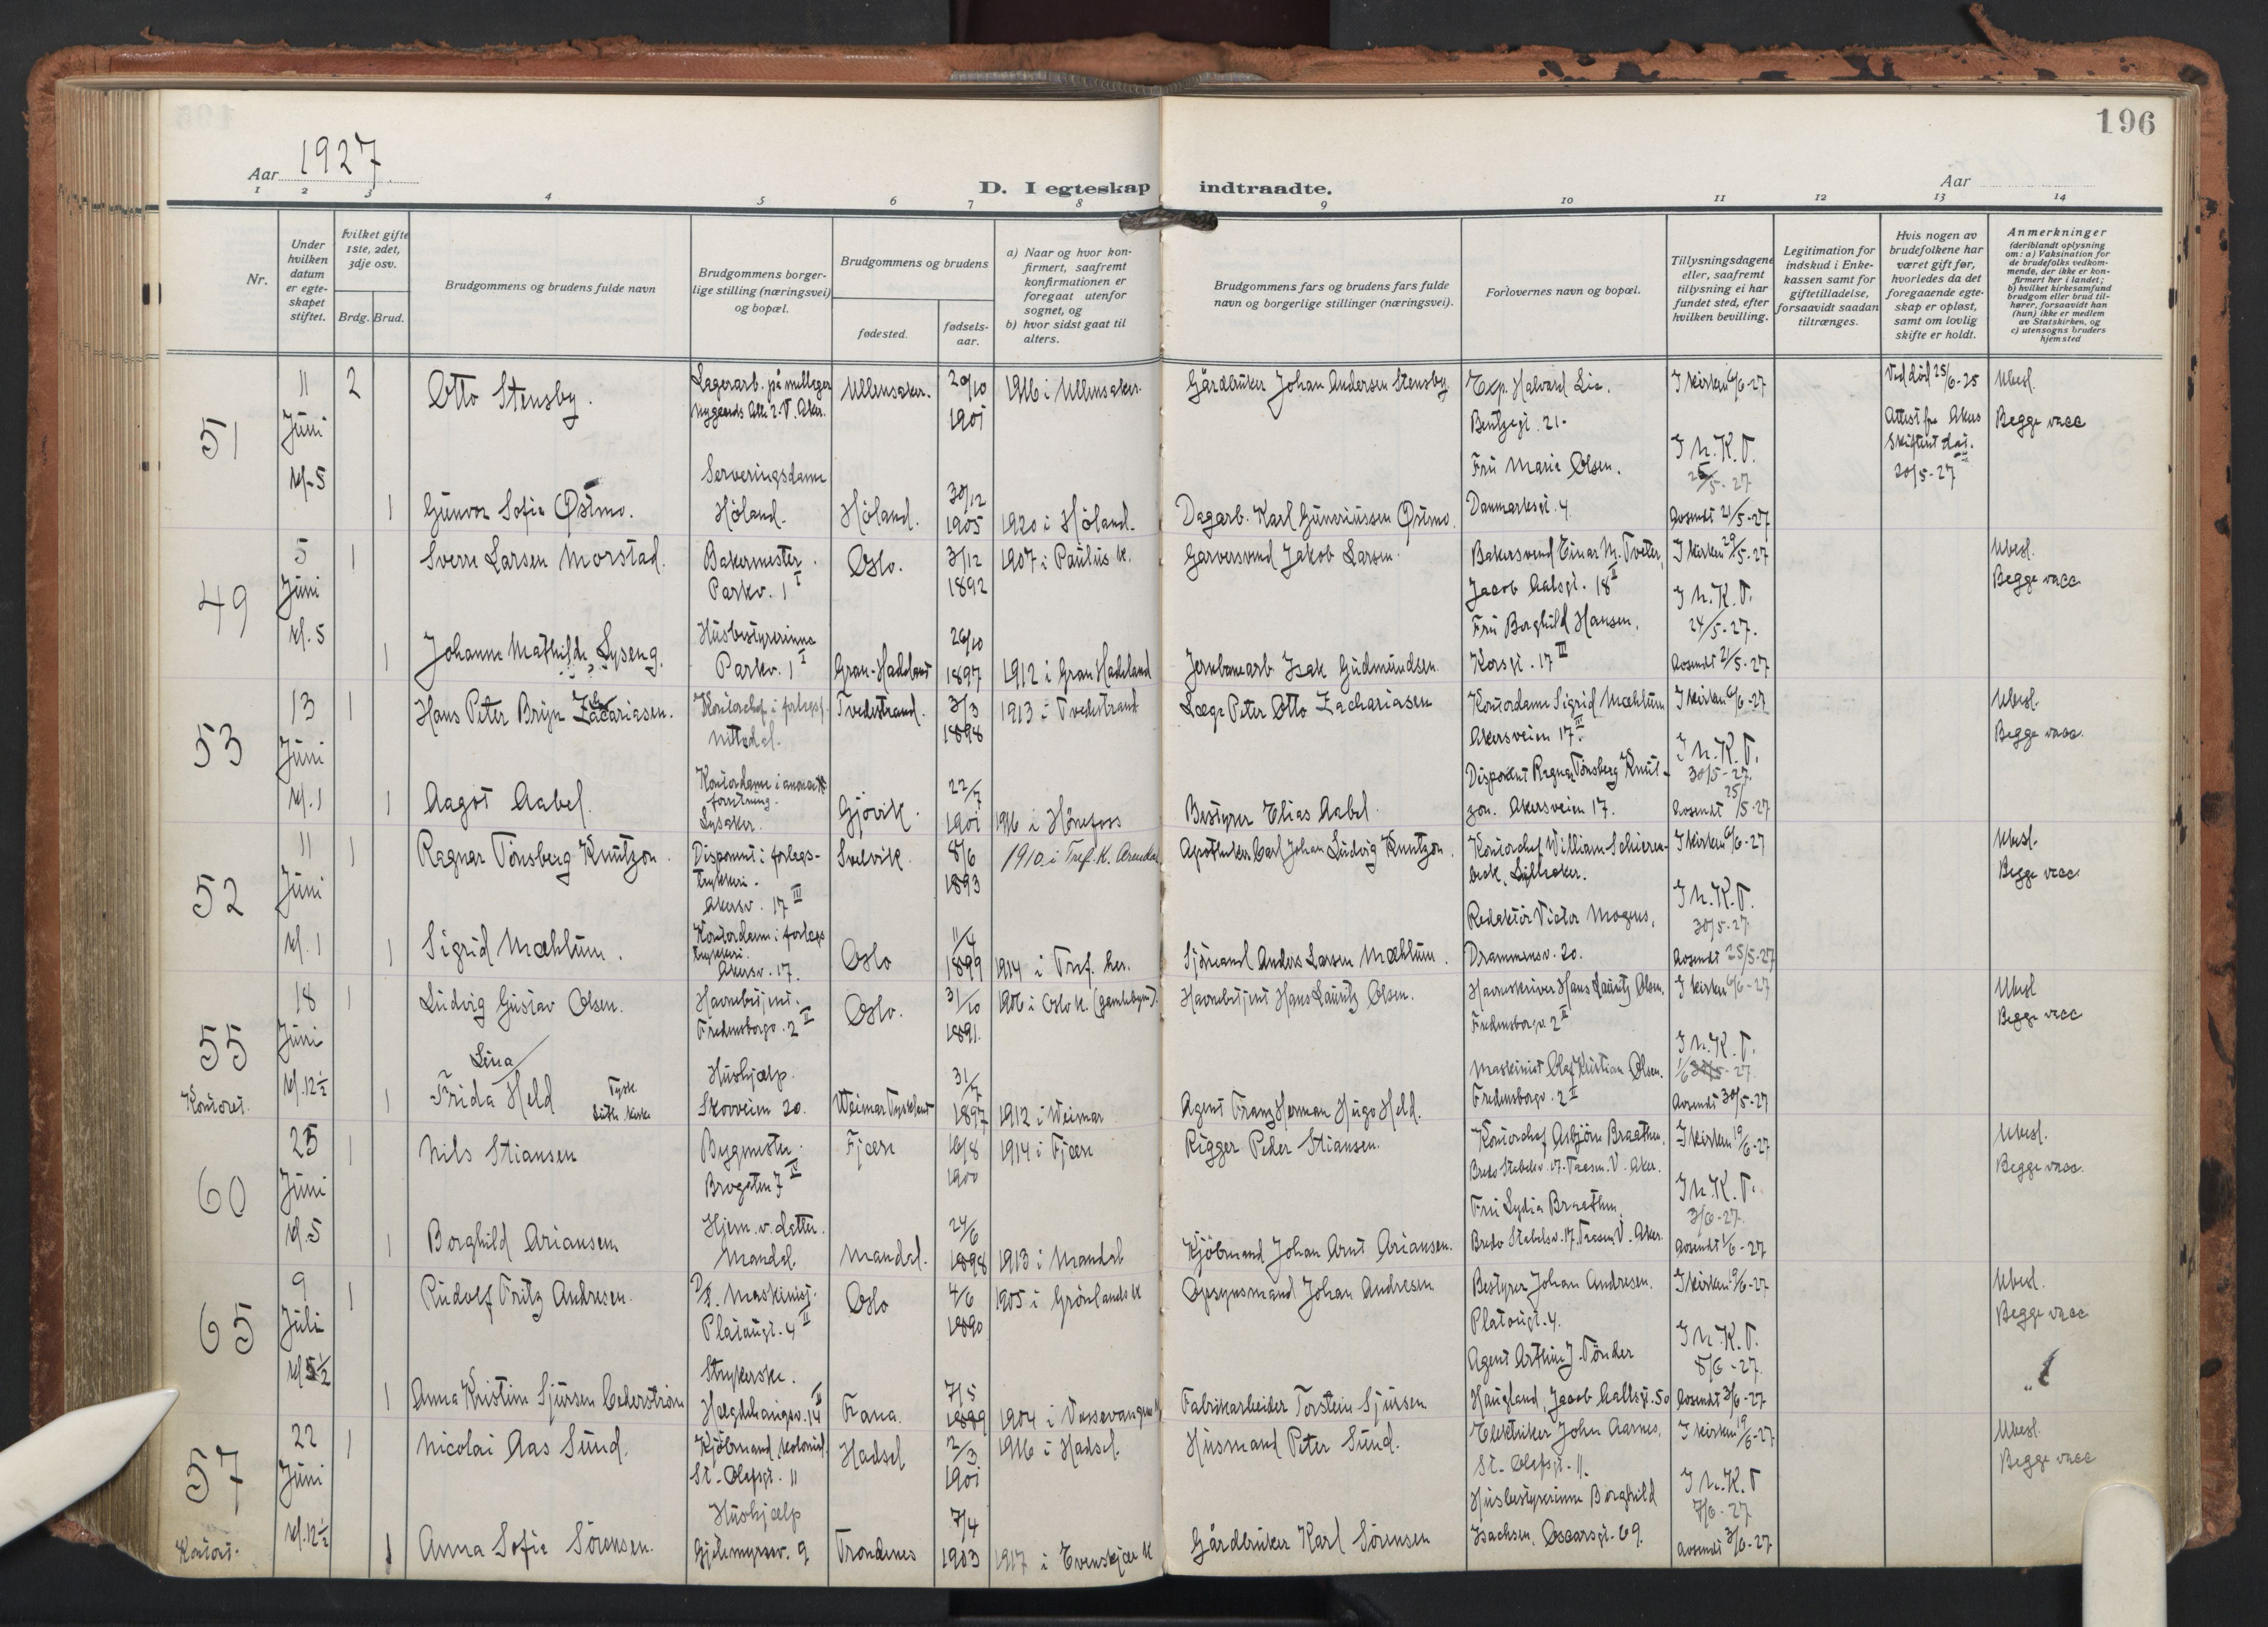 196
Aar 1927
D. I egteskap indtraadte.
Aar
1 2 3 4 5 6 7 8 9 10 11 12 13 14
Nr.
Under hvilken datum er egteskapet stiftet.
Hvilket gifte 1ste, 2det, 3dje osv.
Brdg. Brud.
Brudgommens og brudens fulde navn
Brudgommens borgerlige stilling (næringsvei) og bopæl.
Brudgommens og brudens
fødested.
fødselsaar.
a) Naar og hvor konfirmert, saafremt konfirmationen er foregaat utenfor sognet, og
b) hvor sidst gaat til alters.
Brudgommens fars og brudens fars fulde navn og borgerlige stillinger (næringsvei).
Forlovernes navn og bopæl.
Tillysningsdagene eller, saafremt tillysning ei har fundet sted, efter hvilken bevilling.
Legitimation for indskud i Enkekassen samt for giftetilladelse, forsaavidt saadan tiltrænges.
Hvis nogen av brudefolkene har været gift før, hvorledes da det foregaaende egteskap er opløst, samt om lovlig skifte er holdt.
Anmerkninger (deriblandt oplysning om: a) Vaksination for de brudefolks vedkommende, der ikke er konfirmert her i landet; b) hvilket kirkesamfund brudgom eller brud tilhører, forsaavidt han (hun) ikke er medlem av Statskirken, og c) utensogns bruders hjemsted
51
11 Juni kl. 5
2 Otto Stensby. Lagerarb. på
Nygaards Alle 2. V. Aker.
Ullensaker. 20/10 1901 1916 i Ullensaker.
Gårdbruker Johan Andersen Stensby
Exp. Halvard Lie.
Bentzegt. 21.
Fru Marie Olsen.
Danmarksgt. 4.
I kirken 6/6-27
I h. K. T.
25/5-27
Avsendt 21/5-27
Ved död 25/6-25
Attest fra Akers Skifterett dat. 20/5-27
Ubesl.
Begge vacc
1 Gunvor Sofie Østmo. Serveringsdame
Höland. Höland. 30/12 1905 1920 i Höland.
Dagarb. Karl Guneriussen Østmo.
49
5 Juni kl. 5
1 Sverre Larsen Morstad. Bakermester.
Parkv. 1 I
Oslo. 3/12 1892 1907 i Paulus k.
Garversvend Jakob Larsen.
Bakersvend Einar M. Tveter,
Jacob Aalsgt. 18 II
Fru Borghild Hansen,
Korsgt. 17 III
I kirken 29/5-27
I h. K. T.
24/5-27.
Avsendt 21/5-27
Ubesl.
Begge vacc
1 Johanne Mathilde Lyseng. Husbestyrerinne
Parkv. 1 I
Gran-Hadeland 26/10 1897 1912 i Gran Hadeland
Jernbanearb Isak Gudmundsen
53
13 Juni kl. 1
1 Hans Peter Bryn Zacariasen. Kontorchef i forlagsf.
Nittedal.
Tvedestrand. 3/3 1898 1913 i Tvedestrand
Læge Peter Otto Zachariasen
Kontordame Sigrid Mæhlum
Akersveien 17 III
Disponent Ragnar Tönsberg Knutzon. Akersveien 17.
I kirken 6/6-27
I h. K. T.
30/5-27.
Avsendt 25/5-27
Ubesl.
Begge vacc.
1 Aagot Aabel. Kontordame i
forretning.
Lysaker.
Gjövik. 22/7 1901 1916 i Hönefoss
Bestyrer Elias Aabel.
52
11 Juni kl. 1
1 Ragnar Tönsberg Knutzon. Disponent i forlagstrykkeri.
Akersv. 17 III
Svelvik. 8/6 1893 1910 i Tref. K. Arendal
Apotheker Carl Johan Ludvig Knutzon.
Kontorchef William Schierenbeck, Lilleaker.
Redaktör Victor Mogens,
Drammensv. 20.
I kirken 6/6-27
I h. K. T.
30/5-27.
Avsendt 25/5-27
Ubesl.
Begge vacc.
1 Sigrid Mæhlum. Kontordame i forlagstrykkeri.
Akersv. 17.
Oslo 11/4 1899 1914 i Tref. her.
Sjömand Anders Larsen Mæhlum.
55
Kontoret.
18 Juni kl. 12½
1 Ludvig Gustav Olsen. Havnebetjent.
Fredensborgv. 2 II
Oslo. 31/10 1891. 1906 i Oslo k. (gamlebyen).
Havnebetjent Hans Lauritz Olsen.
Havneskriver Hans Lauritz Olsen.
Fredensborgv. 2 II
Maskinist Olaf Kristian Olsen.
Fredensborgv. 2 II
I kirken 6/6-27
I h. K. T.
1/6 -27.
Avsendt 30/5-27
Ubesl
Begge vacc
Lina
1 Frida Held Tysk Luth. kirke
Hushjælp.
Skovveien 20. Weimar Tyskland 31/7 1897 1912 i Weimar
Agent Franz Herman Hugo Held.
60
25 Juni kl. 5
1 Nils Stiansen Bygmester.
Brogaten 7 IV
Fjære 16/8 1900 1914 i Fjære
Rigger Peder Stiansen.
Kontorchef Asbjörn Braathen,
Bredo Stabelsv. 17. Taasen. V. Aker.
Fru Lydia Braathen,
Bredo Stabelsv. 17. Taasen, V. Aker.
I kirken 19/6-27
I h. K. T.
3/6-27.
Avsendt 1/6-27
Ubesl.
Begge vacc.
1 Borghild Ariansen Hjem. v. datter.
Mandal. Mandal. 24/6 1898 1913 i Mandal
Kjöbmand Johan Arnt Ariansen.
65
9 Juli kl. 5½
1 Rudolf Fritz Andresen. Maskinisj.
Platougt. 4 II
Oslo 4/6 1890 1905 i Grönlands k
Opsynsmand Johan Andresen
Bestyrer Johan Andresen.
Platougt. 4.
Agent Arthur J. Tönder
Haugland, Jacob Aallsgt. 50
I kirken 19/6-27
I h. K. T.
8/6-27.
Avsendt 3/6-27
Ubesl.
Begge vacc
1 Anna Kristine Sjursen Cederström Strykerske.
Hægdehaugsv. 14 II
Fana. 7/5 1899 1904 i Vossevangen k
Fabrikarbeider Torstein Sjursen
57
Kontoret.
22 Juni kl. 12½
1 Nicolai Aas Sund. Kjöbmand, kolonial.
St. Olafsgt. 11
Hadsel 2/3 1901 1916 i Hadsel.
Husmand Peter Sund.
Elektriker John Aarnes,
St. Olafsgt. 11.
Husbestyrerinne Borghild
Isachsen, Oscarsgt. 69.
I kirken 19/6-27
I h. K. T
7/6-27
Avsendt 3/6-27
Ubesl.
Begge vacc
1 Anna Sofie Sörensen. Hushjælp
Gjetemyrsv. 9 Trondenes 7/4 1903 1917 i Evenskjær k
Gårdbruker Karl Sörensen